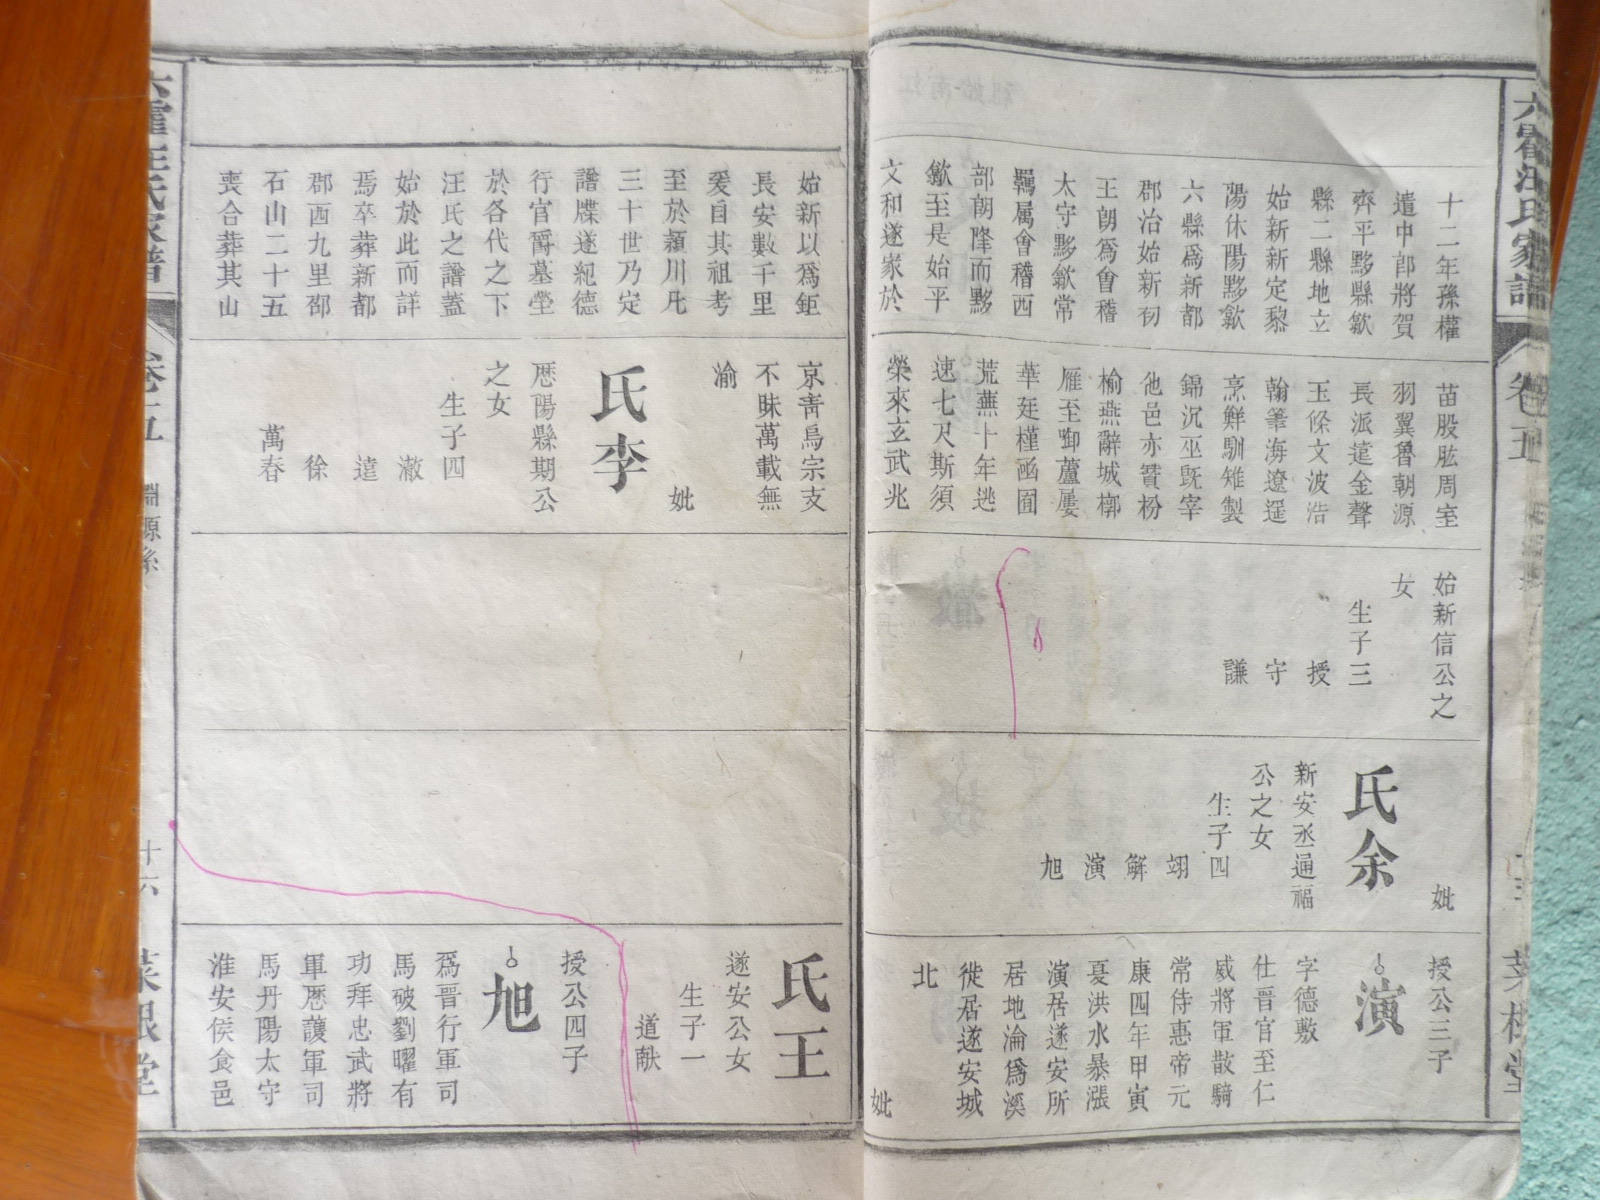 十二年孫權
遣中郎將賀
齊平黟縣歙
縣二縣地立
始新新定黎
陽休陽黟歙
六縣爲新都
郡治始新初
王朗爲會稽
太守黟歙常
羈属會稽西
部朗隆而黟
歙至是始平
文和遂家於
苗股肱周室
羽翼魯朝源
長派遠金聲
玉條文波浩
翰筆海遼遥
烹鮮馴雉製
錦沉巫既宰
他邑亦贊枌
榆燕辭城槨
雁至啣蘆屢
華廷槿函囿
荒蕪十年逃
速七尺斯須
榮來玄武兆
始新信公之
女
生子三
授
守
謙
妣
氏余
新安丞通福
公之女
生子四
翊
解
演
旭
授公三子
演
字德敷
仕晋官至仁
威將軍散騎
常侍惠帝元
康四年甲寅
憂洪水暴漲
演居遂安所
居地淪爲溪
徙居遂安城
北
妣
始新以爲鉅
長安數千里
爰自其祖考
至於潁川凡
三十世乃定
譜牒遂紀德
行官爵墓塋
於各代之下
汪氏之譜蓋
始於此而詳
焉卒葬新都
郡西九里邵
石山二十五
喪合葬其山
京靑烏宗支
不昧萬載無
渝
妣
氏李
歷陽縣期公
之女
生子四
澈
達
徐
萬春
氏王
遂安公女
生子一
道猷
授公四子
旭
爲晋行軍司
馬破劉曜有
功拜忠武將
軍歷護軍司
馬丹陽太守
淮安侯食邑
卷五
淵源系
十六